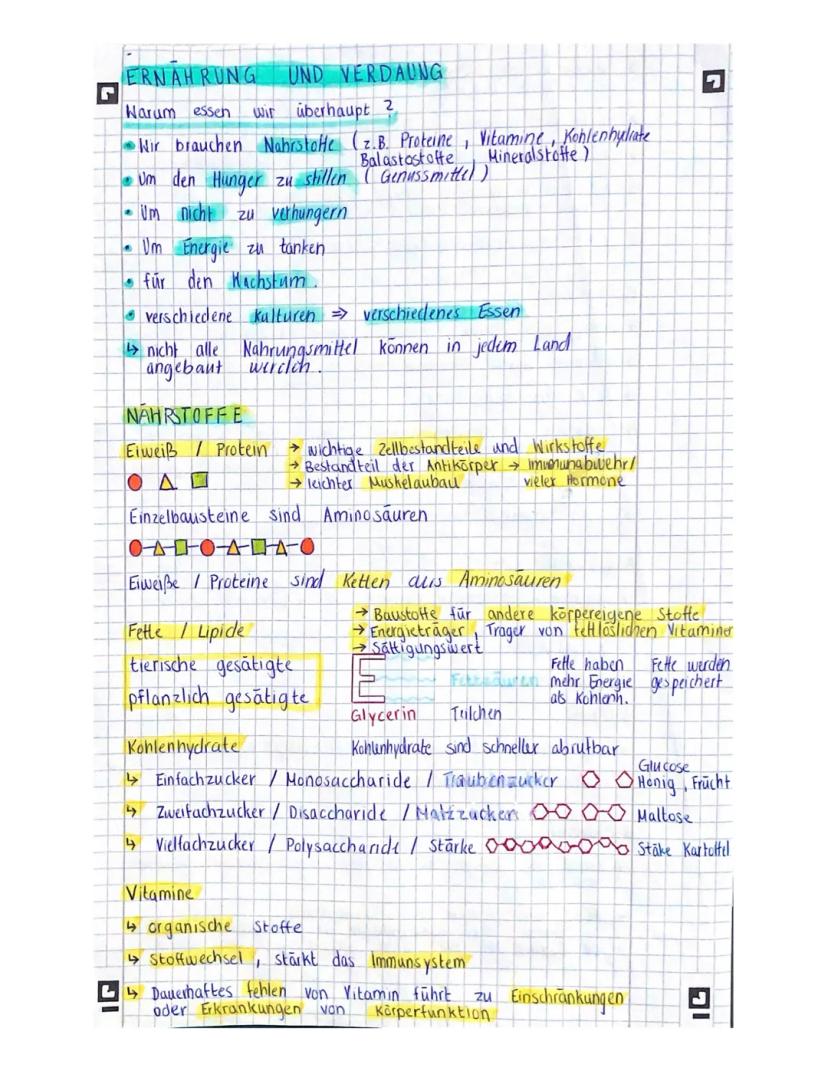 ERNÄHRUNG UND VERDAUNG
Warum essen wir überhaupt ?
• Wir brauchen Nährstoffe (z.B. Proteine , Vitamine , Kohlenhydrate
Balastostoffe , Mineralstoffe )
• Um den Hunger zu stillen ( Genussmittel )
• Um nicht zu verhungern
• Um Energie zu tanken
• für den Wachstum .
• verschiedene Kulturen ⇒ verschiedenes Essen
↳ nicht alle Nahrungsmittel können in jedem Land
angebaut werden .
NÄHRSTOFFE
Eiweiß / Protein → wichtige Zellbestandteile und Wirkstoffe
→ Bestandteil der Antikörper → Immunabwehr/
→ leichter Muskelaubau vieler Hormone
Einzelbausteine sind Aminosäuren
Eiweiße / Proteine sind Ketten aus Aminosäuren
→ Baustoffe für andere körpereigene Stoffe
Fette / Lipide → Energieträger , Träger von fettlöslichen Vitaminen
→ Sättigungswert
tierische gesätigte
pflanzlich gesätigte
Fettsäuren
Glycerin Teilchen
Fette haben
mehr Energie
als Kohlenh.
Fette werden
gespeichert
Kohlenhydrate Kohlenhydrate sind schneller abrufbar
↳ Einfachzucker / Monosaccharide / Traubenzucker Glucose
Honig , Frücht
↳ Zweifachzucker / Disaccharide / Malzzucker Maltose
↳ Vielfachzucker / Polysaccharide / Stärke Stäke Kartoffel
Vitamine
↳ organische Stoffe
↳ Stoffwechsel , stärkt das Immunsystem
↳ Dauerhaftes fehlen von Vitamin führt zu Einschränkungen
oder Erkrankungen von Körperfunktion